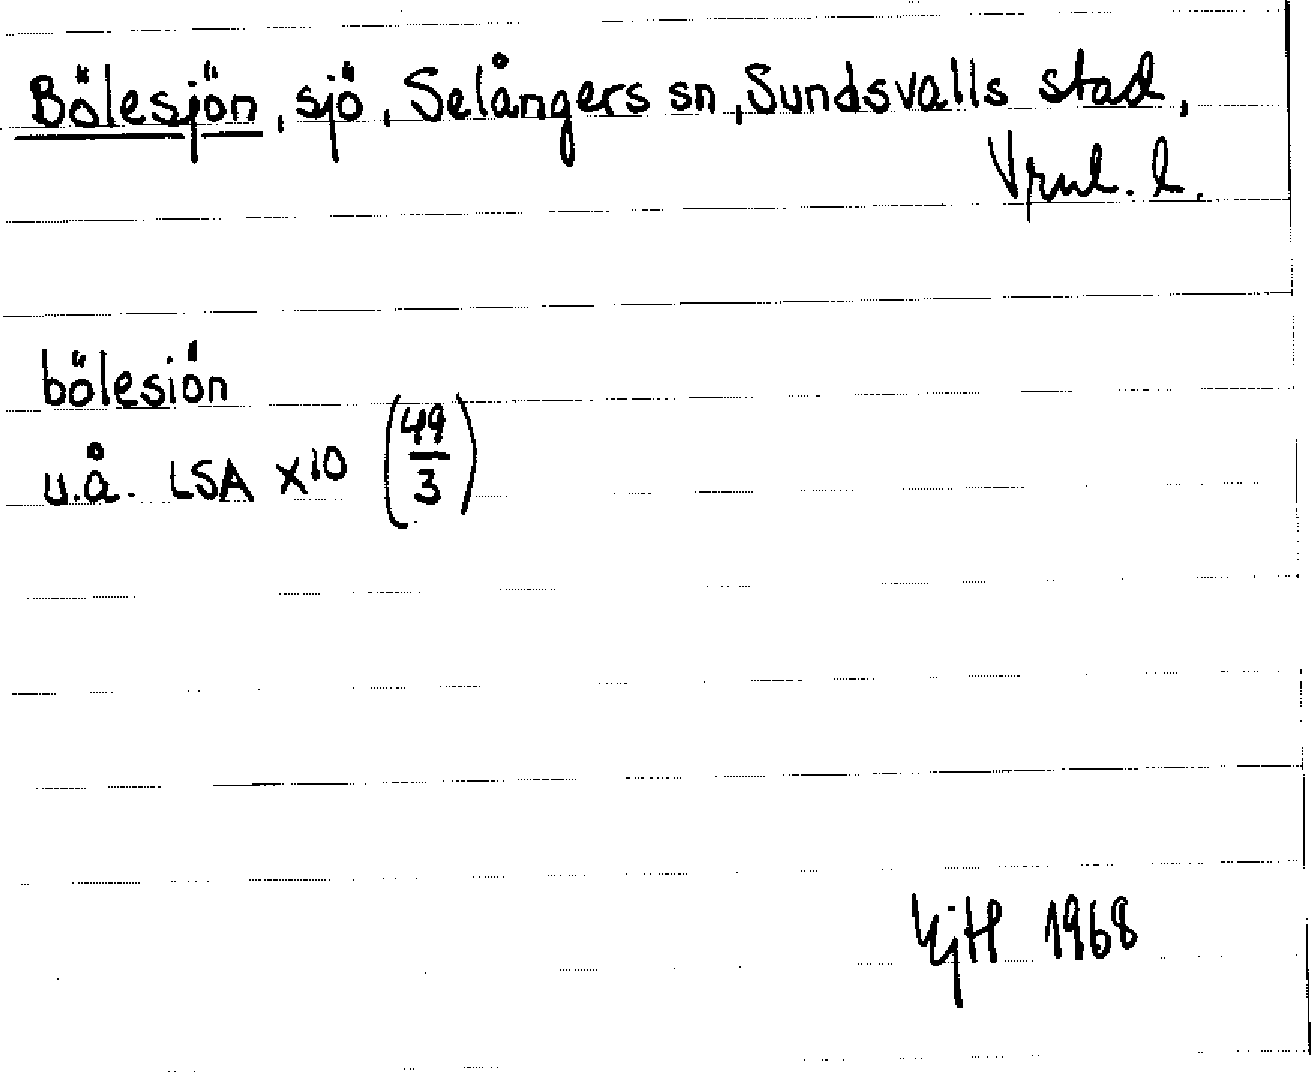 Bölesjön, sjö, Selångers sn, Sundsvalls stad,
Vrnl. l.
bölesiön
u.å. LSA X10 (49/3)
KjH 1968